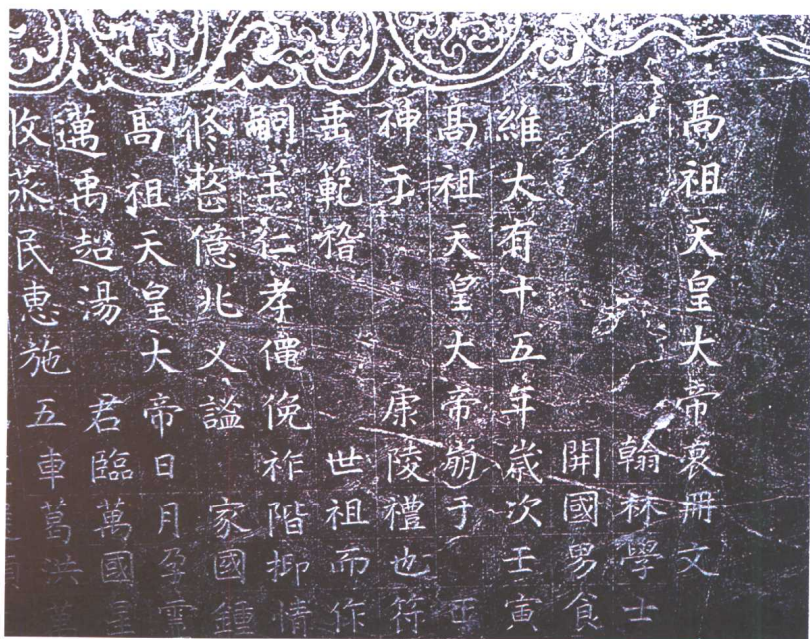 高祖天皇大帝哀冊文
翰林學士
開國男食
維大有十五年歲次壬寅
高祖天皇大帝崩于正
神于 康陵禮也符
垂範稽 世祖而作
嗣主仁孝僶俛祚階抑情
億兆乂謐 家國鍾
高祖天皇大帝日月孕靈
邁禹超湯 君臨萬國星
蒸民惠施五車葛洪